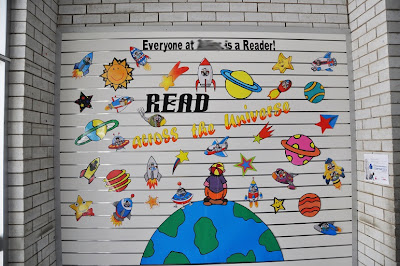 Everyone at is a Reader!
READ
across the Universe